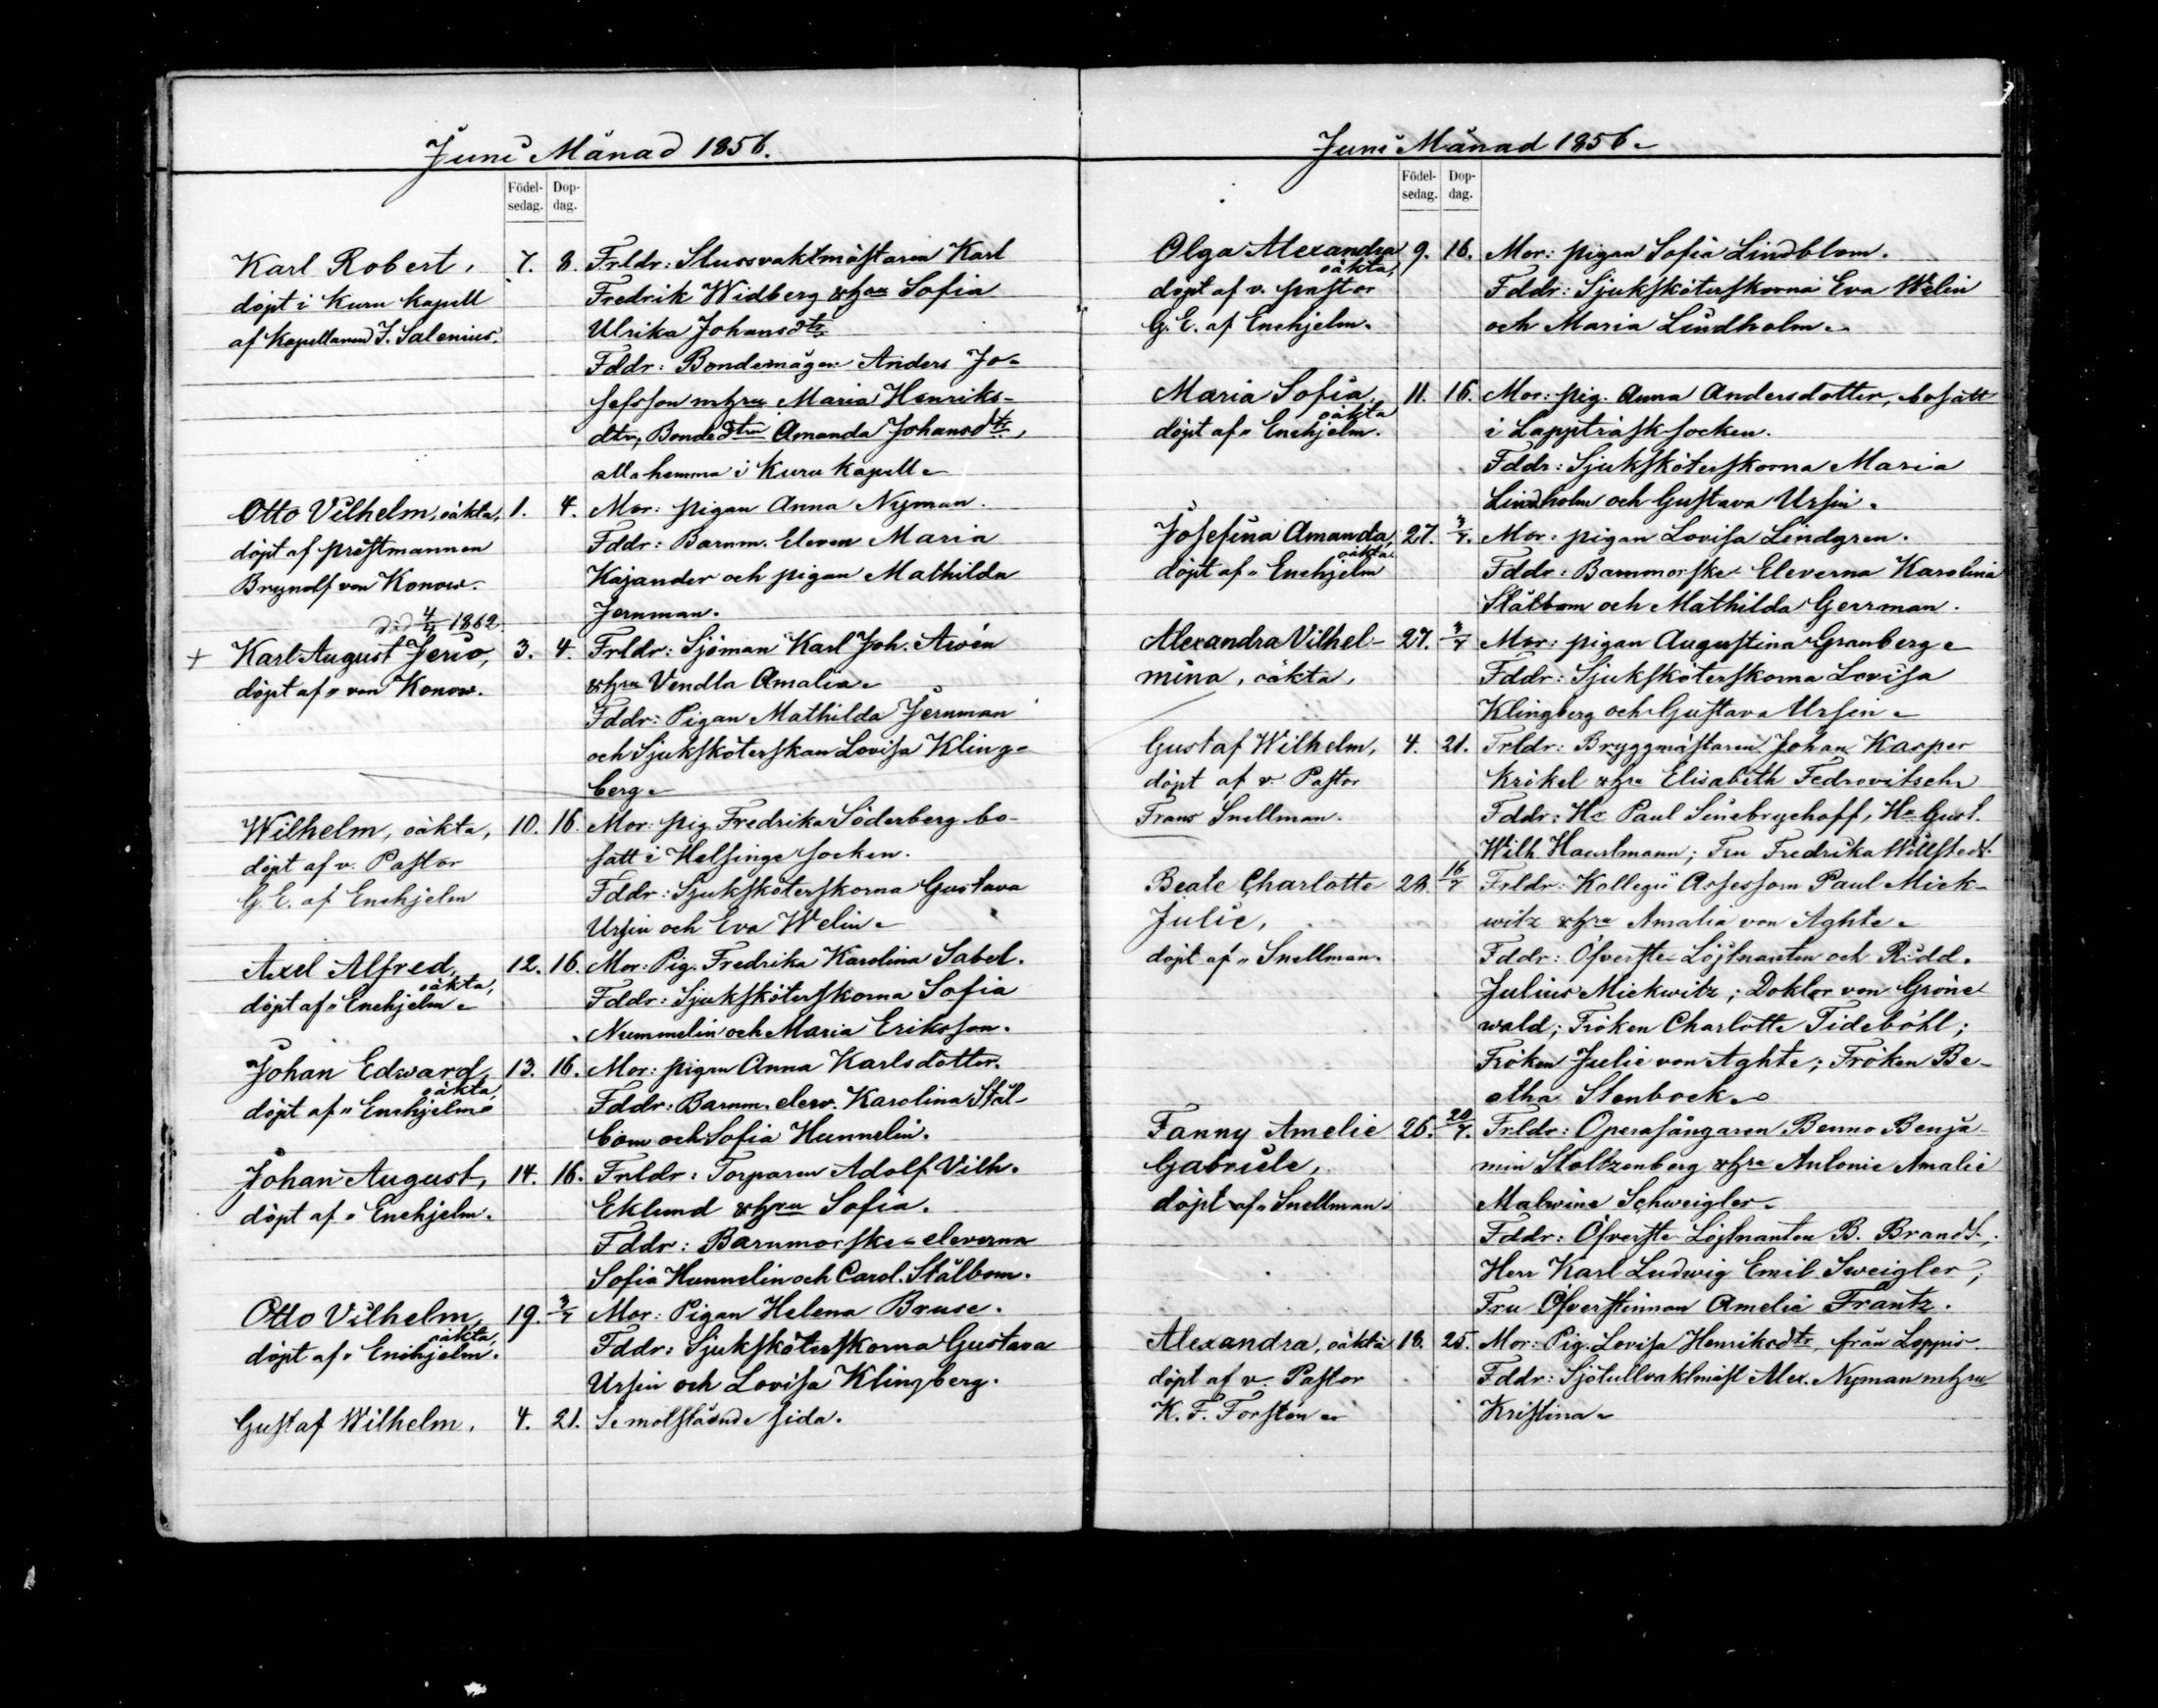 Juni Månad 1856.
Födel-
sedag.
Dop-
dag.
Karl Robert, 7. 8. Frldr: Slussvaktmästaren Karl
döpt i Kuru kapell Fredrik Widberg &hru Sofia
af Kapellanen J. Salenius. Ulrika Johansdtr.
Fddr: Bondemågen Anders Jo-
sefsson mhru Maria Henriks-
dtr, Bondedtrn Amanda Johansdtr,
alla hemma i Kuru kapell.
Otto Vilhelm, oäkta, 1. 4. Mor: pigan Anna Nyman.
döpt af prestmannen Fddr: Barnm. Eleven Maria
Brynolf von Konow. Kajander och pigan Mathilda
Jernman.
död 4/4 1862.
+ Karl August Jerio, 3. 4. Frldr: Sjöman Karl Joh. Awén
döpt af " von Konow. &hru Vendla Amalia.
Fddr: Pigan Mathilda Jernman
och Sjuksköterskan Lovisa Kling-
berg.
Wilhelm, oäkta, 10. 16. Mor: pig. Fredrika Söderberg bo-
döpt af v. Pastor satt i Helsinge socken.
G. E. af Enehjelm Fddr: Sjuksköterskorna Gustava
Ursin och Eva Welin.
Axel Alfred, 12. 16. Mor: Pig. Fredrika Karolina Sabel.
oäkta,
döpt af " Enehjelm. Fddr: Sjuksköterskorna Sofia
Nummelin och Maria Eriksson.
Johan Edward, 13. 16. Mor: pigan Anna Karlsdotter.
oäkta,
döpt af " Enehjelm. Fddr: Barnm. elev. Karolina Stål-
bom och Sofia Hunnelin.
Johan August, 14. 16. Frldr: Torparen Adolf Vilh.
döpt af " Enehjelm. Eklund &hru Sofia.
Fddr: Barnmorske-eleverna
Sofia Hunnelin och Carol. Stålbom.
Otto Vilhelm, 19. 3/7 Mor: Pigan Helena Bruse.
oäkta,
döpt af " Enehjelm. Fddr: Sjuksköterskorna Gustava
Ursin och Lovisa Klingberg.
Gustaf Wilhelm, 4. 21. Se motstående sida.
Juni Månad 1856.
Födel-
sedag.
Dop-
dag.
Olga Alexandra 9. 16. Mor: pigan Sofia Lindblom.
oäkta,
döpt af v. pastor Fddr: Sjuksköterskorna Eva Welin
G. E. af Enehjelm. och Maria Lindholm.
Maria Sofia, 11. 16. Mor: pig. Anna Andersdotter, bosatt
oäkta
döpt af " Enehjelm. i Lappträsk socken.
Fddr: Sjuksköterskorna Maria
Lindholm och Gustava Ursin.
Josefina Amanda, 27. 3/7. Mor: pigan Lovisa Lindgren.
oäkta
döpt af " Enehjelm Fddr: Barnmorske Eleverna Karolina
Stålbom och Mathilda Gerrman.
Alexandra Vilhel- 27. 3/7 Mor: pigan Augustina Granberg.
mina, oäkta, Fddr: Sjuksköterskorna Lovisa
Klingberg och Gustava Ursin.
Gustaf Wilhelm, 4. 21. Frldr: Bryggmästaren Johan Kasper
döpt af v. Pastor Krökel &hru Elisabeth Fedrovitsch
Frans Snellman. Fddr: Hr Paul Sinebrychoff, Hr Gust.
Wilh. Hauslmann; Fru Fredrika Willstedt.
Beate Charlotte 28. 16/7 Frldr: Kollegii Assessorn Paul Mick-
Julie, witz &hru Amalia von Aghte.
döpt af " Snellman. Fddr: Öfverste Löjtnanten och Ridd.
Julius Mickwitz; Doktor von Gröne-
wald; Fröken Charlotte Tideböhl;
Fröken Julie von Aghte; Fröken Be-
atha Stenbock.
Fanny Amelie 26. 20/7. Frldr: Operasångaren Benno Benja-
Gabriele, min Stoltzenberg &hru Antonie Amalie
döpt af " Snellman. Malwine Schweigler.
Fddr: Öfverste Löjtnanten B. Brandt,
Herr Karl Ludwig Emil Sweigler,
Fru Öfverstinnan Amelie Frantz.
Alexandra, oäkta 18. 25. Mor: Pig. Lovisa Henriksdtr, från Loppis.
döpt af v. Pastor Fddr: Sjötullvaktmäst Alex. Nyman mhru
K. F. Forstén. Kristina.